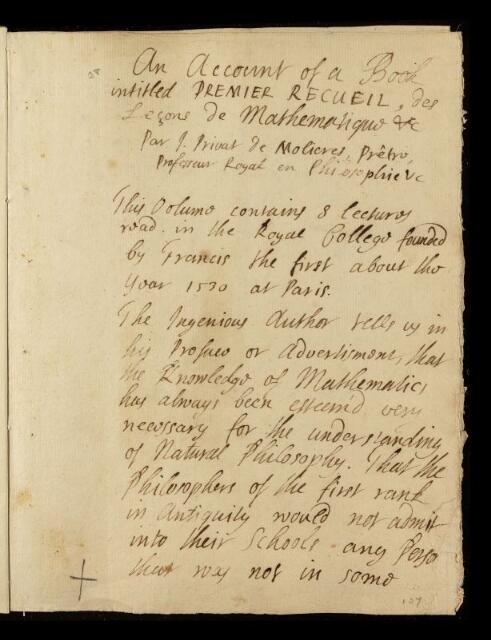 An Account of a Book
intitled PREMIER RECUEIL, des
Leçons de Mathematique &c
Par J. Privat de Molieres, Prêtre,
Professeur Royal en Philosophie &c
This Volume contains 8 lectures
read in the Royal College founded
by Francis the first about the
year 1530 at Paris.
The Ingenious Author tells us in
his Preface or Advertisment, that
the Knowledge of Mathematics
has always been esteem'd very
necessary for the understanding
of Natural Philosophy. That the
Philosophers of the first rank
in Antiquity would not admit
into their Schools any Perso
that was not in some
127